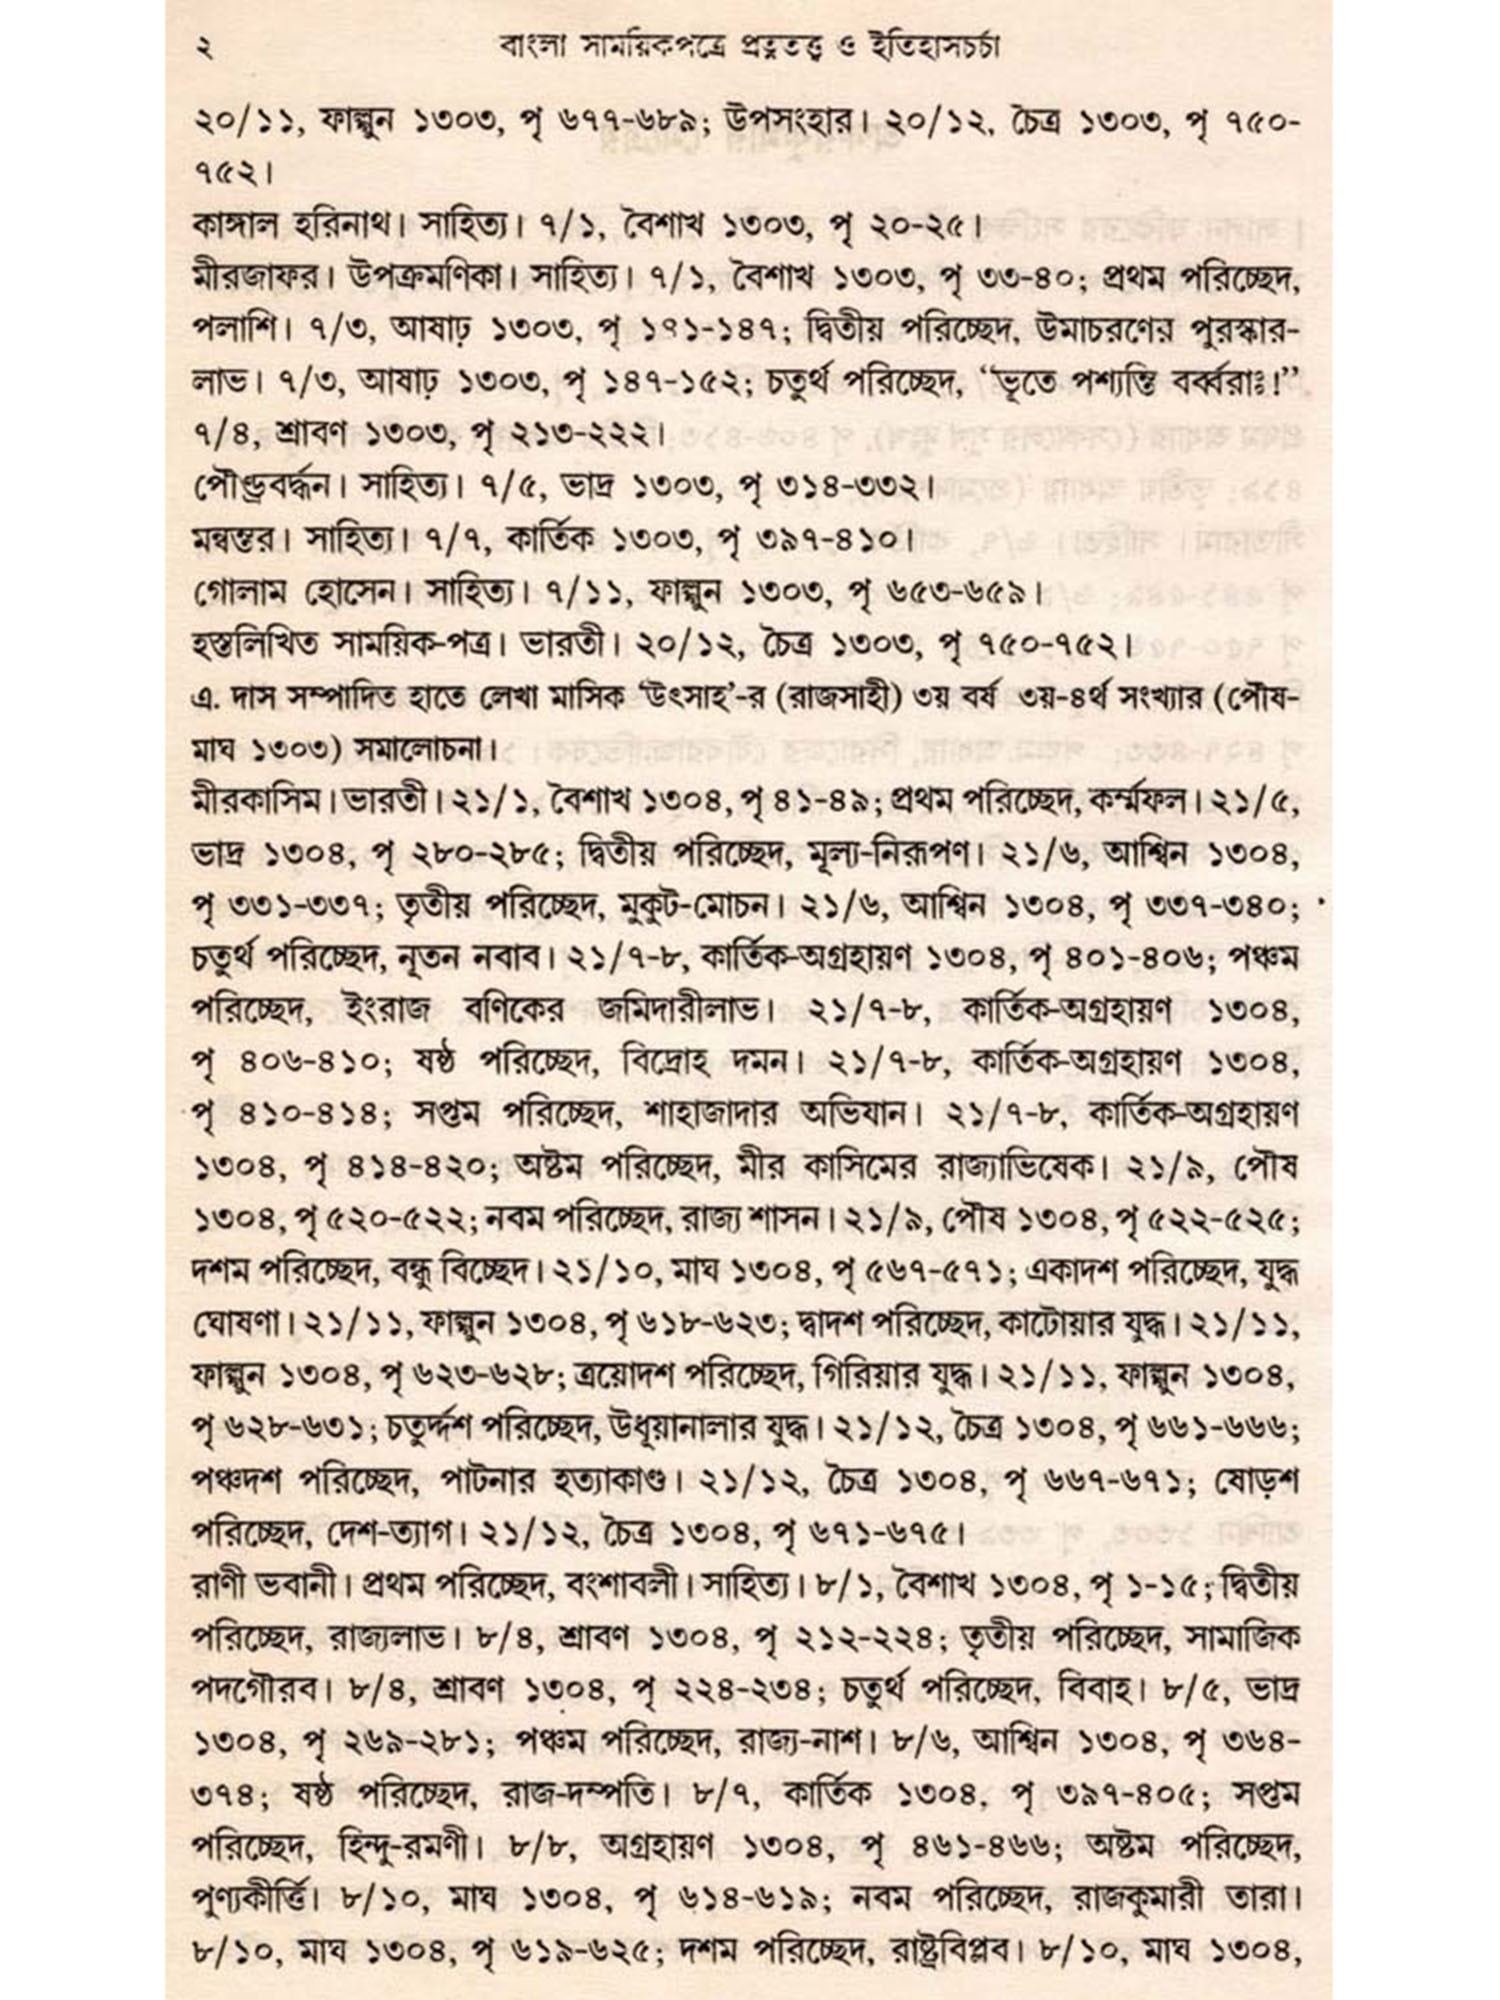 ২ বাংলা সাময়িকপত্রে প্রত্নতত্ত্ব ও ইতিহাসচর্চা
২০/১১, ফাল্গুন ১৩০৩, পৃ ৬৭৭-৬৮৯; উপসংহার। ২০/১২, চৈত্র ১৩০৩, পৃ ৭৫০-
৭৫২।
কাঙ্গাল হরিনাথ। সাহিত্য। ৭/১, বৈশাখ ১৩০৩, পৃ ২০-২৫।
মীরজাফর। উপক্রমণিকা। সাহিত্য। ৭/১, বৈশাখ ১৩০৩, পৃ ৩৩-৪০; প্রথম পরিচ্ছেদ,
পলাশি। ৭/৩, আষাঢ় ১৩০৩, পৃ ১৪১-১৪৭; দ্বিতীয় পরিচ্ছেদ, উমাচরণের পুরস্কার-
লাভ। ৭/৩, আষাঢ় ১৩০৩, পৃ ১৪৭-১৫২; চতুর্থ পরিচ্ছেদ, “ভূতে পশ্যন্তি বর্ব্বরাঃ!”
৭/৪, শ্রাবণ ১৩০৩, পৃ ২১৩-২২২।
পৌণ্ড্রবর্দ্ধন। সাহিত্য। ৭/৫, ভাদ্র ১৩০৩, পৃ ৩১৪-৩৩২।
মন্বন্তর। সাহিত্য। ৭/৭, কার্তিক ১৩০৩, পৃ ৩৯৭-৪১০।
গোলাম হোসেন। সাহিত্য। ৭/১১, ফাল্গুন ১৩০৩, পৃ ৬৫৩-৬৫৯।
হস্তলিখিত সাময়িক-পত্র। ভারতী। ২০/১২, চৈত্র ১৩০৩, পৃ ৭৫০-৭৫২।
এ. দাস সম্পাদিত হাতে লেখা মাসিক ‘উৎসাহ’-র (রাজসাহী) ৩য় বর্ষ ৩য়-৪র্থ সংখ্যার (পৌষ-
মাঘ ১৩০৩) সমালোচনা।
মীরকাসিম। ভারতী। ২১/১, বৈশাখ ১৩০৪, পৃ ৪১-৪৯; প্রথম পরিচ্ছেদ, কর্ম্মফল। ২১/৫,
ভাদ্র ১৩০৪, পৃ ২৮০-২৮৫; দ্বিতীয় পরিচ্ছেদ, মূল্য-নিরূপণ। ২১/৬, আশ্বিন ১৩০৪,
পৃ ৩৩১-৩৩৭; তৃতীয় পরিচ্ছেদ, মুকুট-মোচন। ২১/৬, আশ্বিন ১৩০৪, পৃ ৩৩৭-৩৪০;
চতুর্থ পরিচ্ছেদ, নূতন নবাব। ২১/৭-৮, কার্তিক-অগ্রহায়ণ ১৩০৪, পৃ ৪০১-৪০৬; পঞ্চম
পরিচ্ছেদ, ইংরাজ বণিকের জমিদারীলাভ। ২১/৭-৮, কার্তিক-অগ্রহায়ণ ১৩০৪,
পৃ ৪০৬-৪১০; ষষ্ঠ পরিচ্ছেদ, বিদ্রোহ দমন। ২১/৭-৮, কার্তিক-অগ্রহায়ণ ১৩০৪,
পৃ ৪১০-৪১৪; সপ্তম পরিচ্ছেদ, শাহাজাদার অভিযান। ২১/৭-৮, কার্তিক-অগ্রহায়ণ
১৩০৪, পৃ ৪১৪-৪২০; অষ্টম পরিচ্ছেদ, মীর কাসিমের রাজ্যাভিষেক। ২১/৯, পৌষ
১৩০৪, পৃ ৫২০-৫২২; নবম পরিচ্ছেদ, রাজ্য শাসন। ২১/৯, পৌষ ১৩০৪, পৃ ৫২২-৫২৫;
দশম পরিচ্ছেদ, বন্ধু বিচ্ছেদ। ২১/১০, মাঘ ১৩০৪, পৃ ৫৬৭-৫৭১; একাদশ পরিচ্ছেদ, যুদ্ধ
ঘোষণা। ২১/১১, ফাল্গুন ১৩০৪, পৃ ৬১৮-৬২৩; দ্বাদশ পরিচ্ছেদ, কাটোয়ার যুদ্ধ। ২১/১১,
ফাল্গুন ১৩০৪, পৃ ৬২৩-৬২৮; ত্রয়োদশ পরিচ্ছেদ, গিরিয়ার যুদ্ধ। ২১/১১, ফাল্গুন ১৩০৪,
পৃ ৬২৮-৬৩১; চতুর্দ্দশ পরিচ্ছেদ, উধূয়ানালার যুদ্ধ। ২১/১২, চৈত্র ১৩০৪, পৃ ৬৬১-৬৬৬;
পঞ্চদশ পরিচ্ছেদ, পাটনার হত্যাকাণ্ড। ২১/১২, চৈত্র ১৩০৪, পৃ ৬৬৭-৬৭১; ষোড়শ
পরিচ্ছেদ, দেশ-ত্যাগ। ২১/১২, চৈত্র ১৩০৪, পৃ ৬৭১-৬৭৫।
রাণী ভবানী। প্রথম পরিচ্ছেদ, বংশাবলী। সাহিত্য। ৮/১, বৈশাখ ১৩০৪, পৃ ১-১৫; দ্বিতীয়
পরিচ্ছেদ, রাজ্যলাভ। ৮/৪, শ্রাবণ ১৩০৪, পৃ ২১২-২২৪; তৃতীয় পরিচ্ছেদ, সামাজিক
পদগৌরব। ৮/৪, শ্রাবণ ১৩০৪, পৃ ২২৪-২৩৪; চতুর্থ পরিচ্ছেদ, বিবাহ। ৮/৫, ভাদ্র
১৩০৪, পৃ ২৬৯-২৮১; পঞ্চম পরিচ্ছেদ, রাজ্য-নাশ। ৮/৬, আশ্বিন ১৩০৪, পৃ ৩৬৪-
৩৭৪; ষষ্ঠ পরিচ্ছেদ, রাজ-দম্পতি। ৮/৭, কার্তিক ১৩০৪, পৃ ৩৯৭-৪০৫; সপ্তম
পরিচ্ছেদ, হিন্দু-রমণী। ৮/৮, অগ্রহায়ণ ১৩০৪, পৃ ৪৬১-৪৬৬; অষ্টম পরিচ্ছেদ,
পুণ্যকীর্ত্তি। ৮/১০, মাঘ ১৩০৪, পৃ ৬১৪-৬১৯; নবম পরিচ্ছেদ, রাজকুমারী তারা।
৮/১০, মাঘ ১৩০৪, পৃ ৬১৯-৬২৫; দশম পরিচ্ছেদ, রাষ্ট্রবিপ্লব। ৮/১০, মাঘ ১৩০৪,